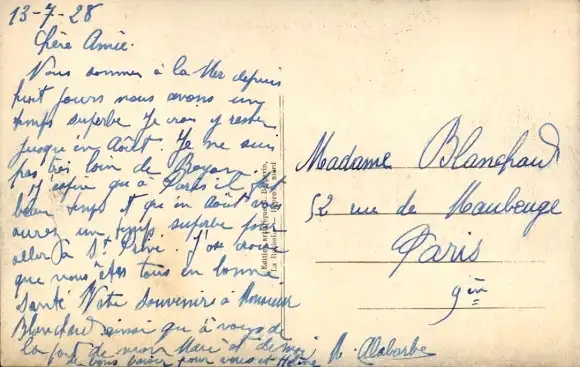 13-7-28
Chère Amie.
Nous sommes à la Mer depuis
huit jours nous avons un
temps superbe Je crois y rester
jusqu'en Août. Je ne suis
pas très loin de Royan.
J'espère qu'à Paris il fait
beau temps et qu'en Août vous
aurez un temps superbe pour
aller à St Privé. J'ose croire
que vous êtes tous en bonne
santé Notre souvenir à Monsieur
Blanchard ainsi qu'à vous de
la part de mon Mari et de moi
bons baisers pour vous et Hélène
M. Alabarbe
Madame Blanchard
52 rue de Maubeuge
Paris
9em
Edition
La Rochelle